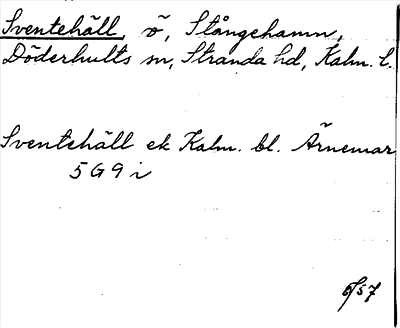 Sventehäll, ö, Stångehamn,
Döderhults sn, Stranda hd, Kalm. l.
Sventehäll ek Kalm. bl. Ärnemar
5G9i
6/57